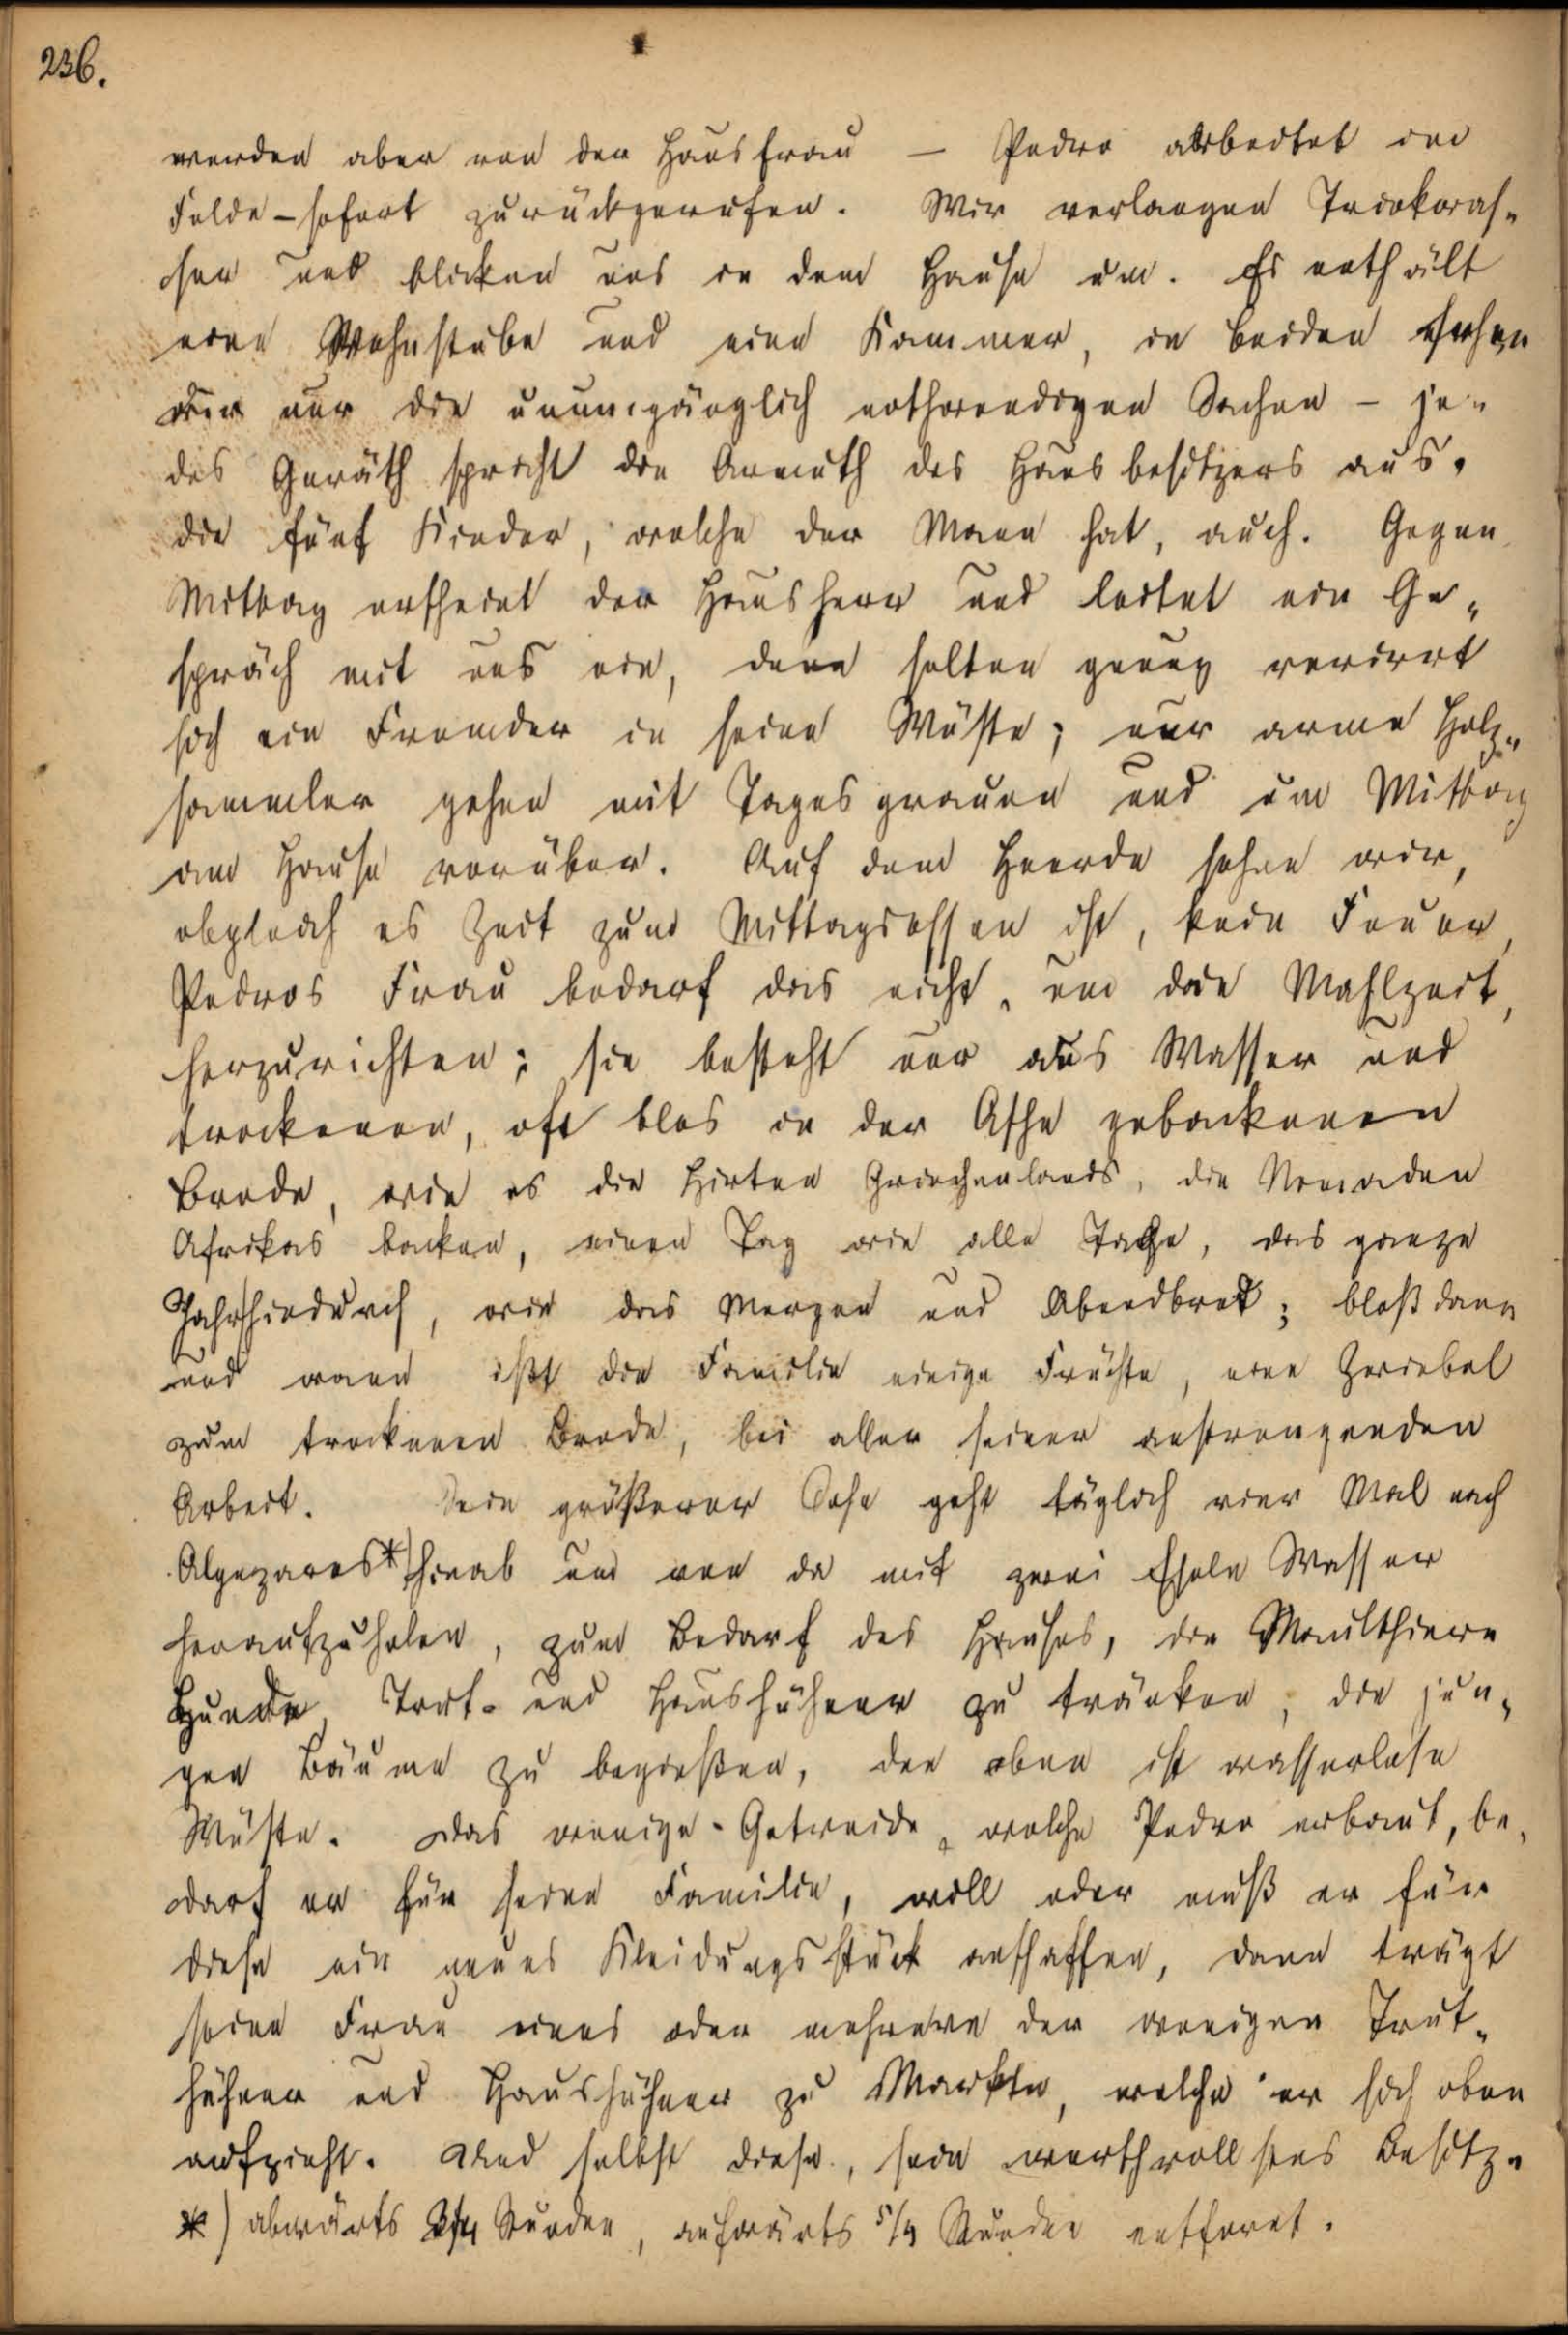 236.
werden aber von der Hausfrau — Pedro arbeitet im
Felde – sofort zurückgerufen. Wir verlangen Trinkwas-
ser und blicken uns in dem Hause um. Es enthält
eine Wohnstube und eine Kammer, in beiden sehen
wir nur die unumgänglich nothwendigen Sachen – je-
des Geräth spricht die Armuth des Hausbesitzers aus,
die fünf Kinder, welche der Mann hat, auch. Gegen
Mittag erscheint der Hausherr und leitet ein Ge-
spräch mit uns ein, denn selten genug verirrt
sich ein Fremder in seine Wüste; nur arme Holz-
sammler gehen mit Tagesgrauen und um Mittag
am Hause vorüber. Auf dem Heerde sehen wir,
obgleich es Zeit zum Mittagsessen ist, kein Feuer,
Pedros Frau bedarf das nicht, um die Mahlzeit,
herzurichten; sie besteht nur aus Wasser und
trockenen, oft blos in der Asche gebackenen
Brode, wie es die Hirten Griechenlands, die Nomaden
Afrikas backen, einen Tag wie alle Tage, das ganze
Jahr hindurch, wie das Morgen und Abendbrot; bloß dann
und wann ißt die Familie einige Früchte, eine Zwiebel
zum trockenen Brode, bei aller seiner anstrengenden
Arbeit. Sein größerer Sohn geht täglich vier Mal nach
Algezares*) hinab um von da mit zwei Eseln Wasser
heraufzuholen, zum Bedarf des Hauses, die Maulthiere
Hunde, Trut- und Haushühner zu tränken, die jun-
gen Bäume zu begießen, den oben ist wasserlose
Wüste. Das wenige Getreide, welche Pedro erbaut, be-
darf er für seine Familie, will oder muß er für
diese ein neues Kleidungsstück anschaffen, dann trägt
seine Frau eines oder mehrere der wenigen Trut-
hühner und Haushühner zu Markte, welche er sich oben
aufzieht. Und selbst diese, sein werthvollstes Besitz-
*) abwärts 3/4 Stunden, aufwärts 5/4 Stunden entfernt.